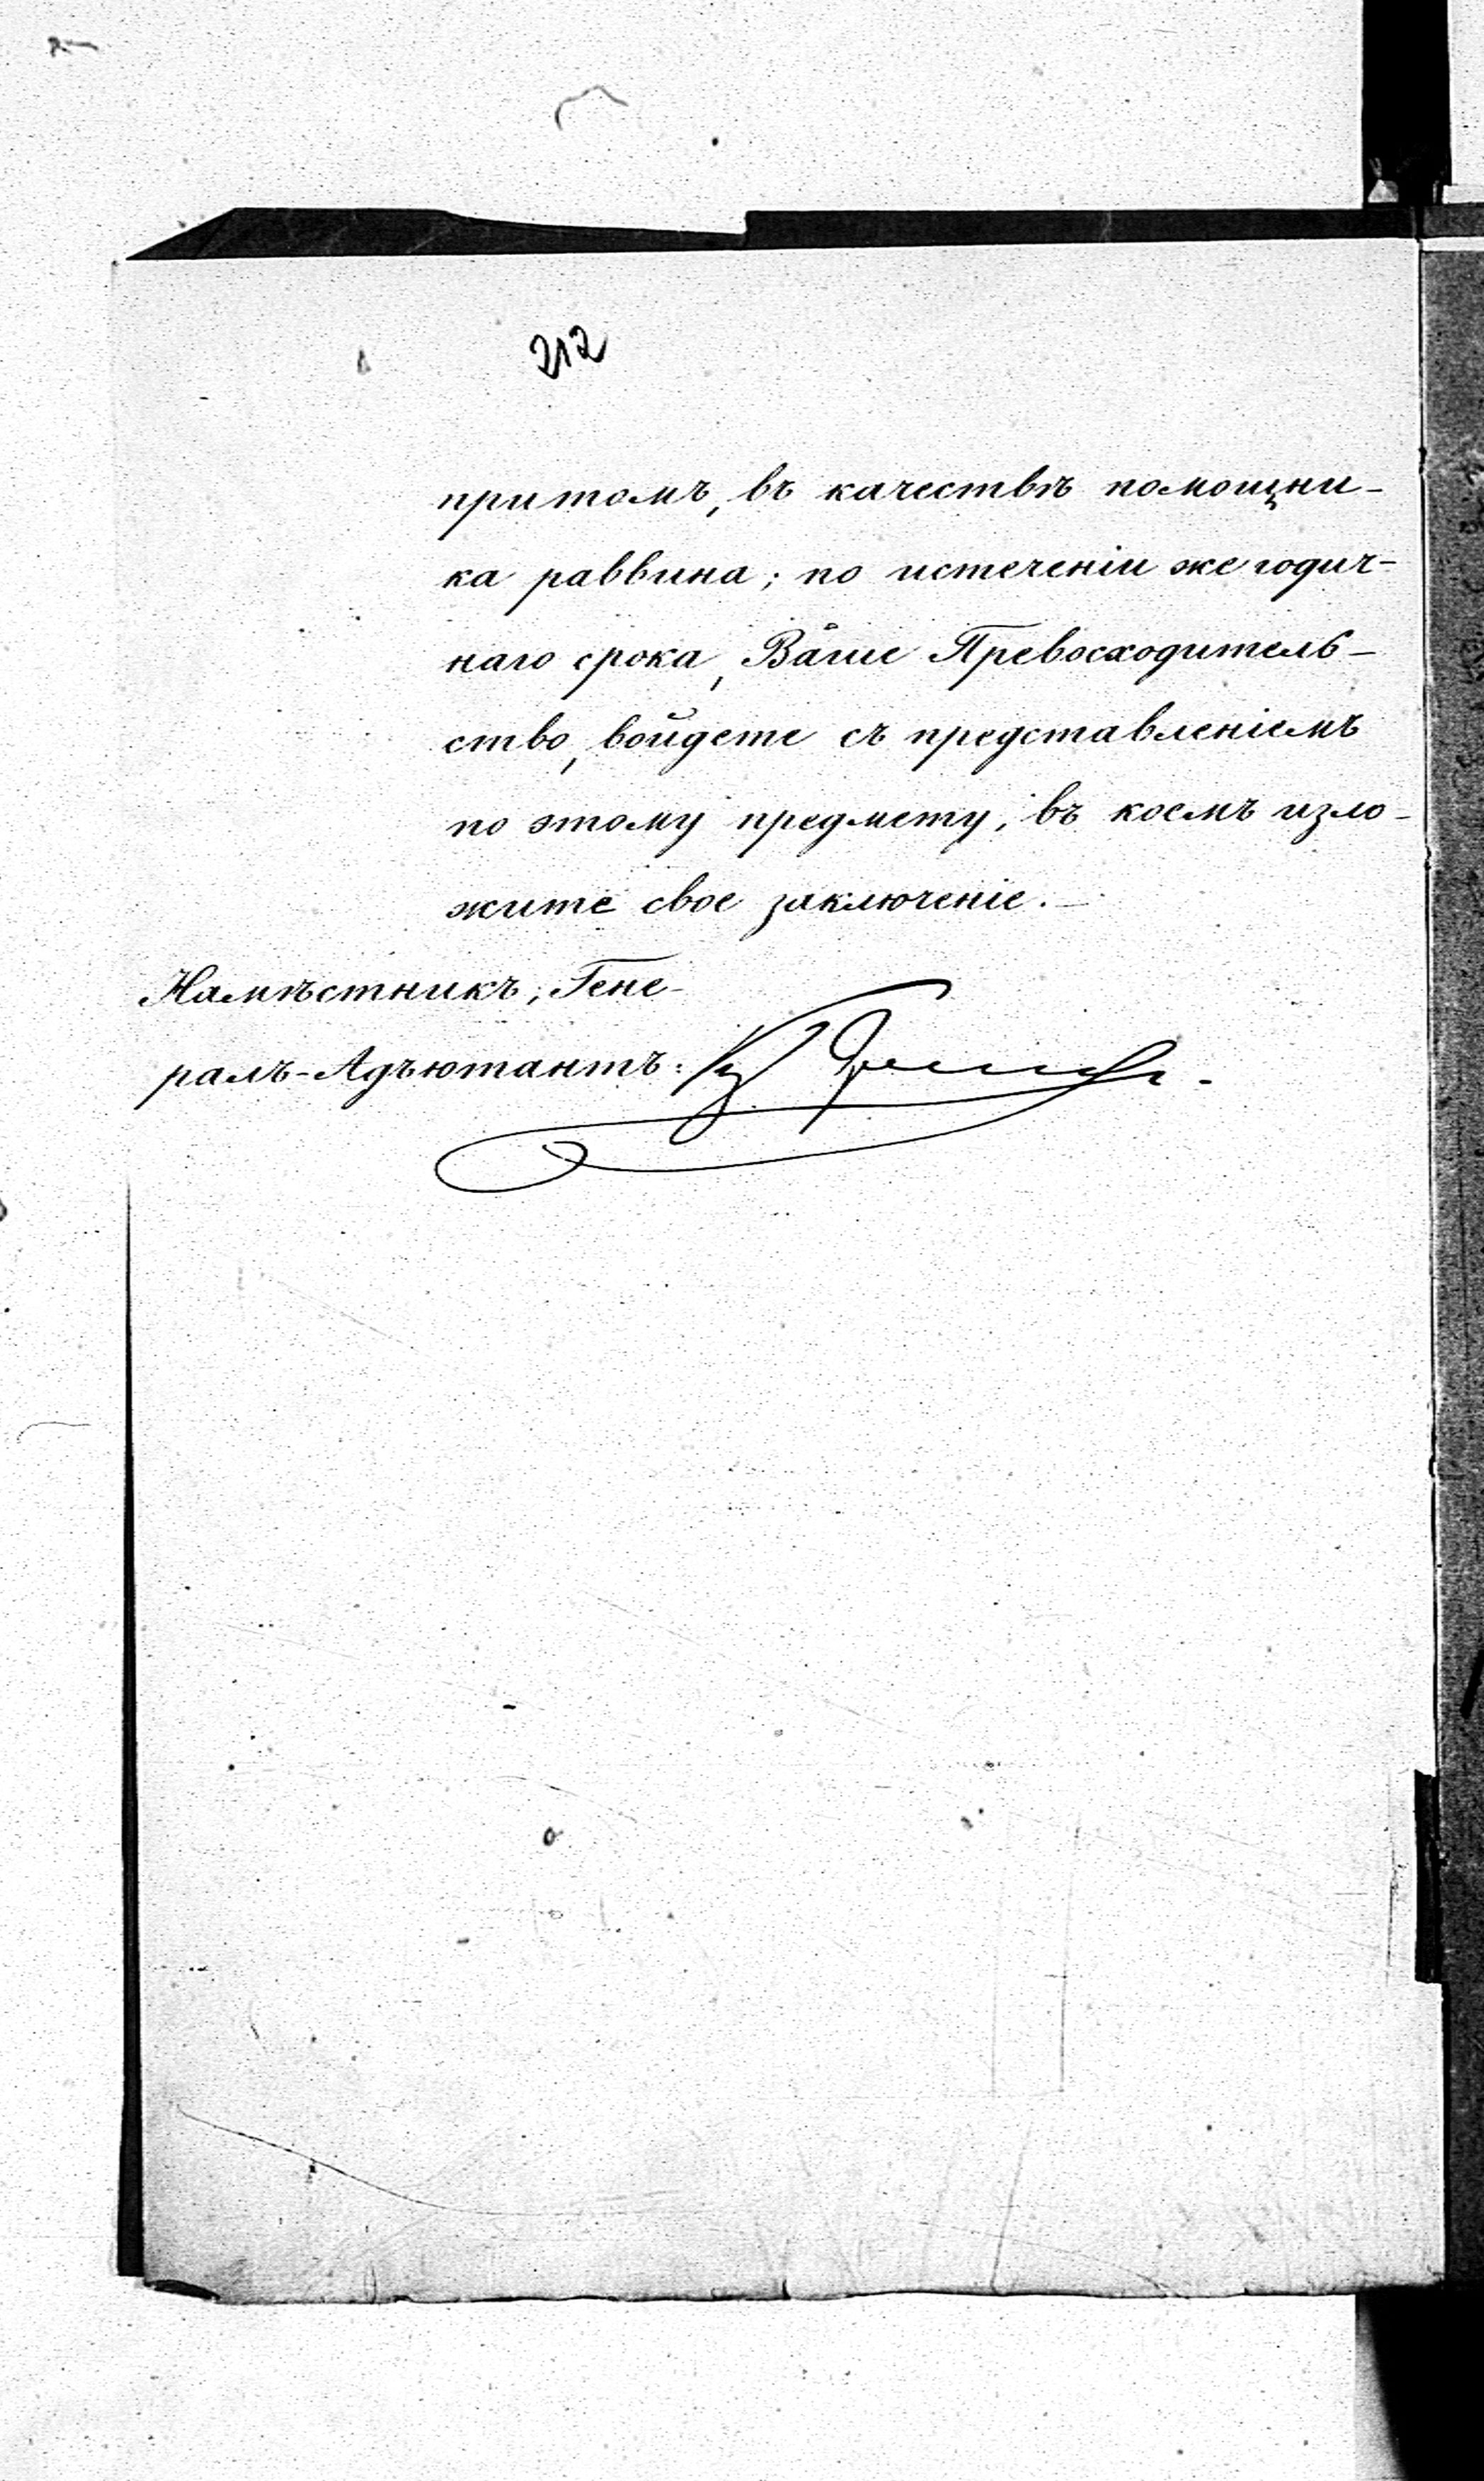 212
притомъ, въ качествѣ помощни-
ка раввина; по истеченіи же годич-
наго срока, Ваше Превосходитель-
ство, войдете съ представленіемъ
по этому предмету, въ коемъ изло-
жите свое заключеніе.-
Намѣстникъ, Гене-
ралъ-Адъютантъ: